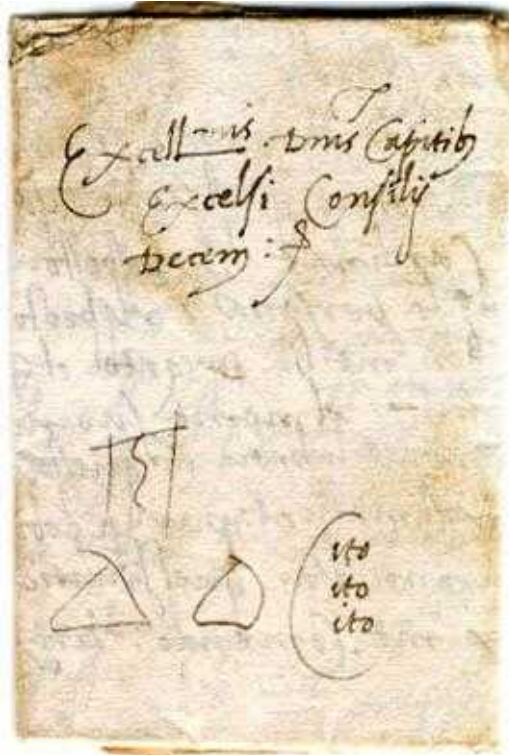 Excell^mis Dnis Capitib3
Excelsi Consilij
Decem :
ito
ito
ito